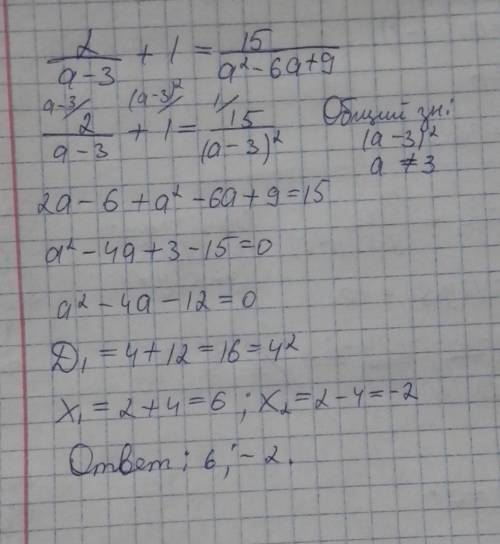 2/(a-3) + 1 = 15/(a²-6a+9)
a-3/ (a-3)²/ 1/
2/(a-3) + 1 = 15/(a-3)²
Общий зн:
(a-3)²
a ≠ 3
2a-6+a²-6a+9=15
a²-4a+3-15=0
a²-4a-12=0
D₁=4+12=16=4²
x₁=2+4=6; x₂=2-4=-2
Ответ: 6; -2.